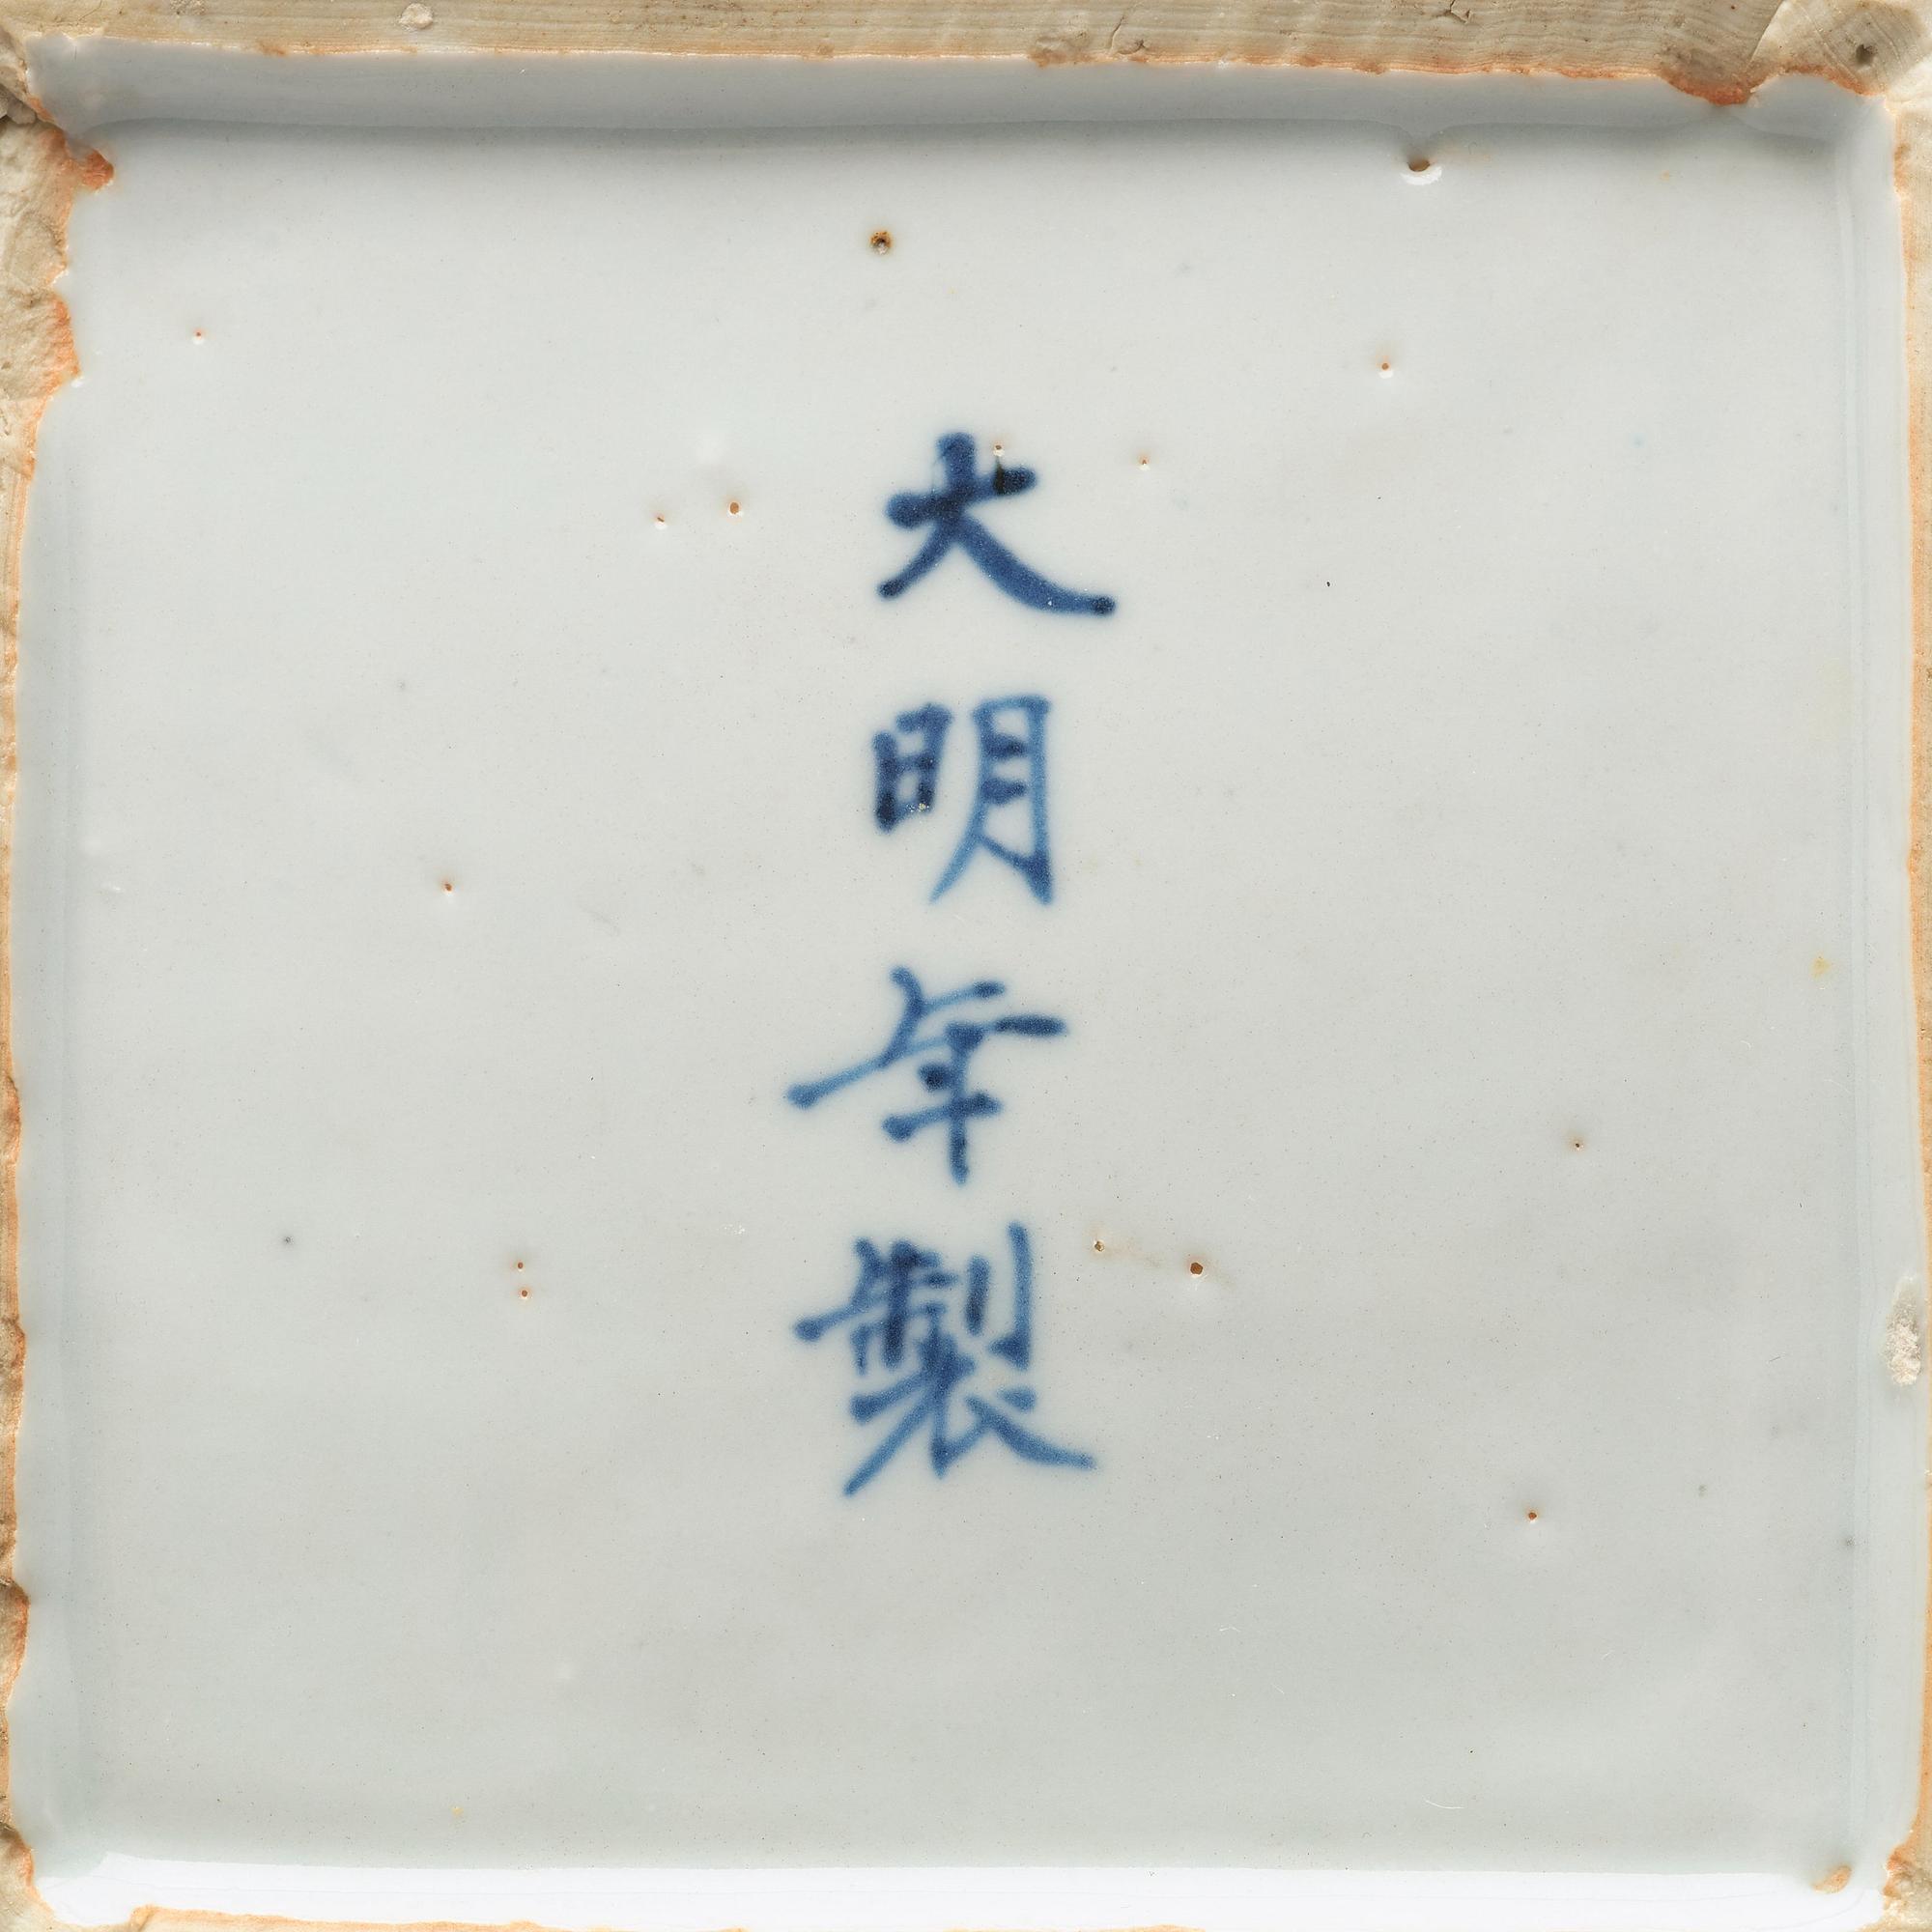 大明年製